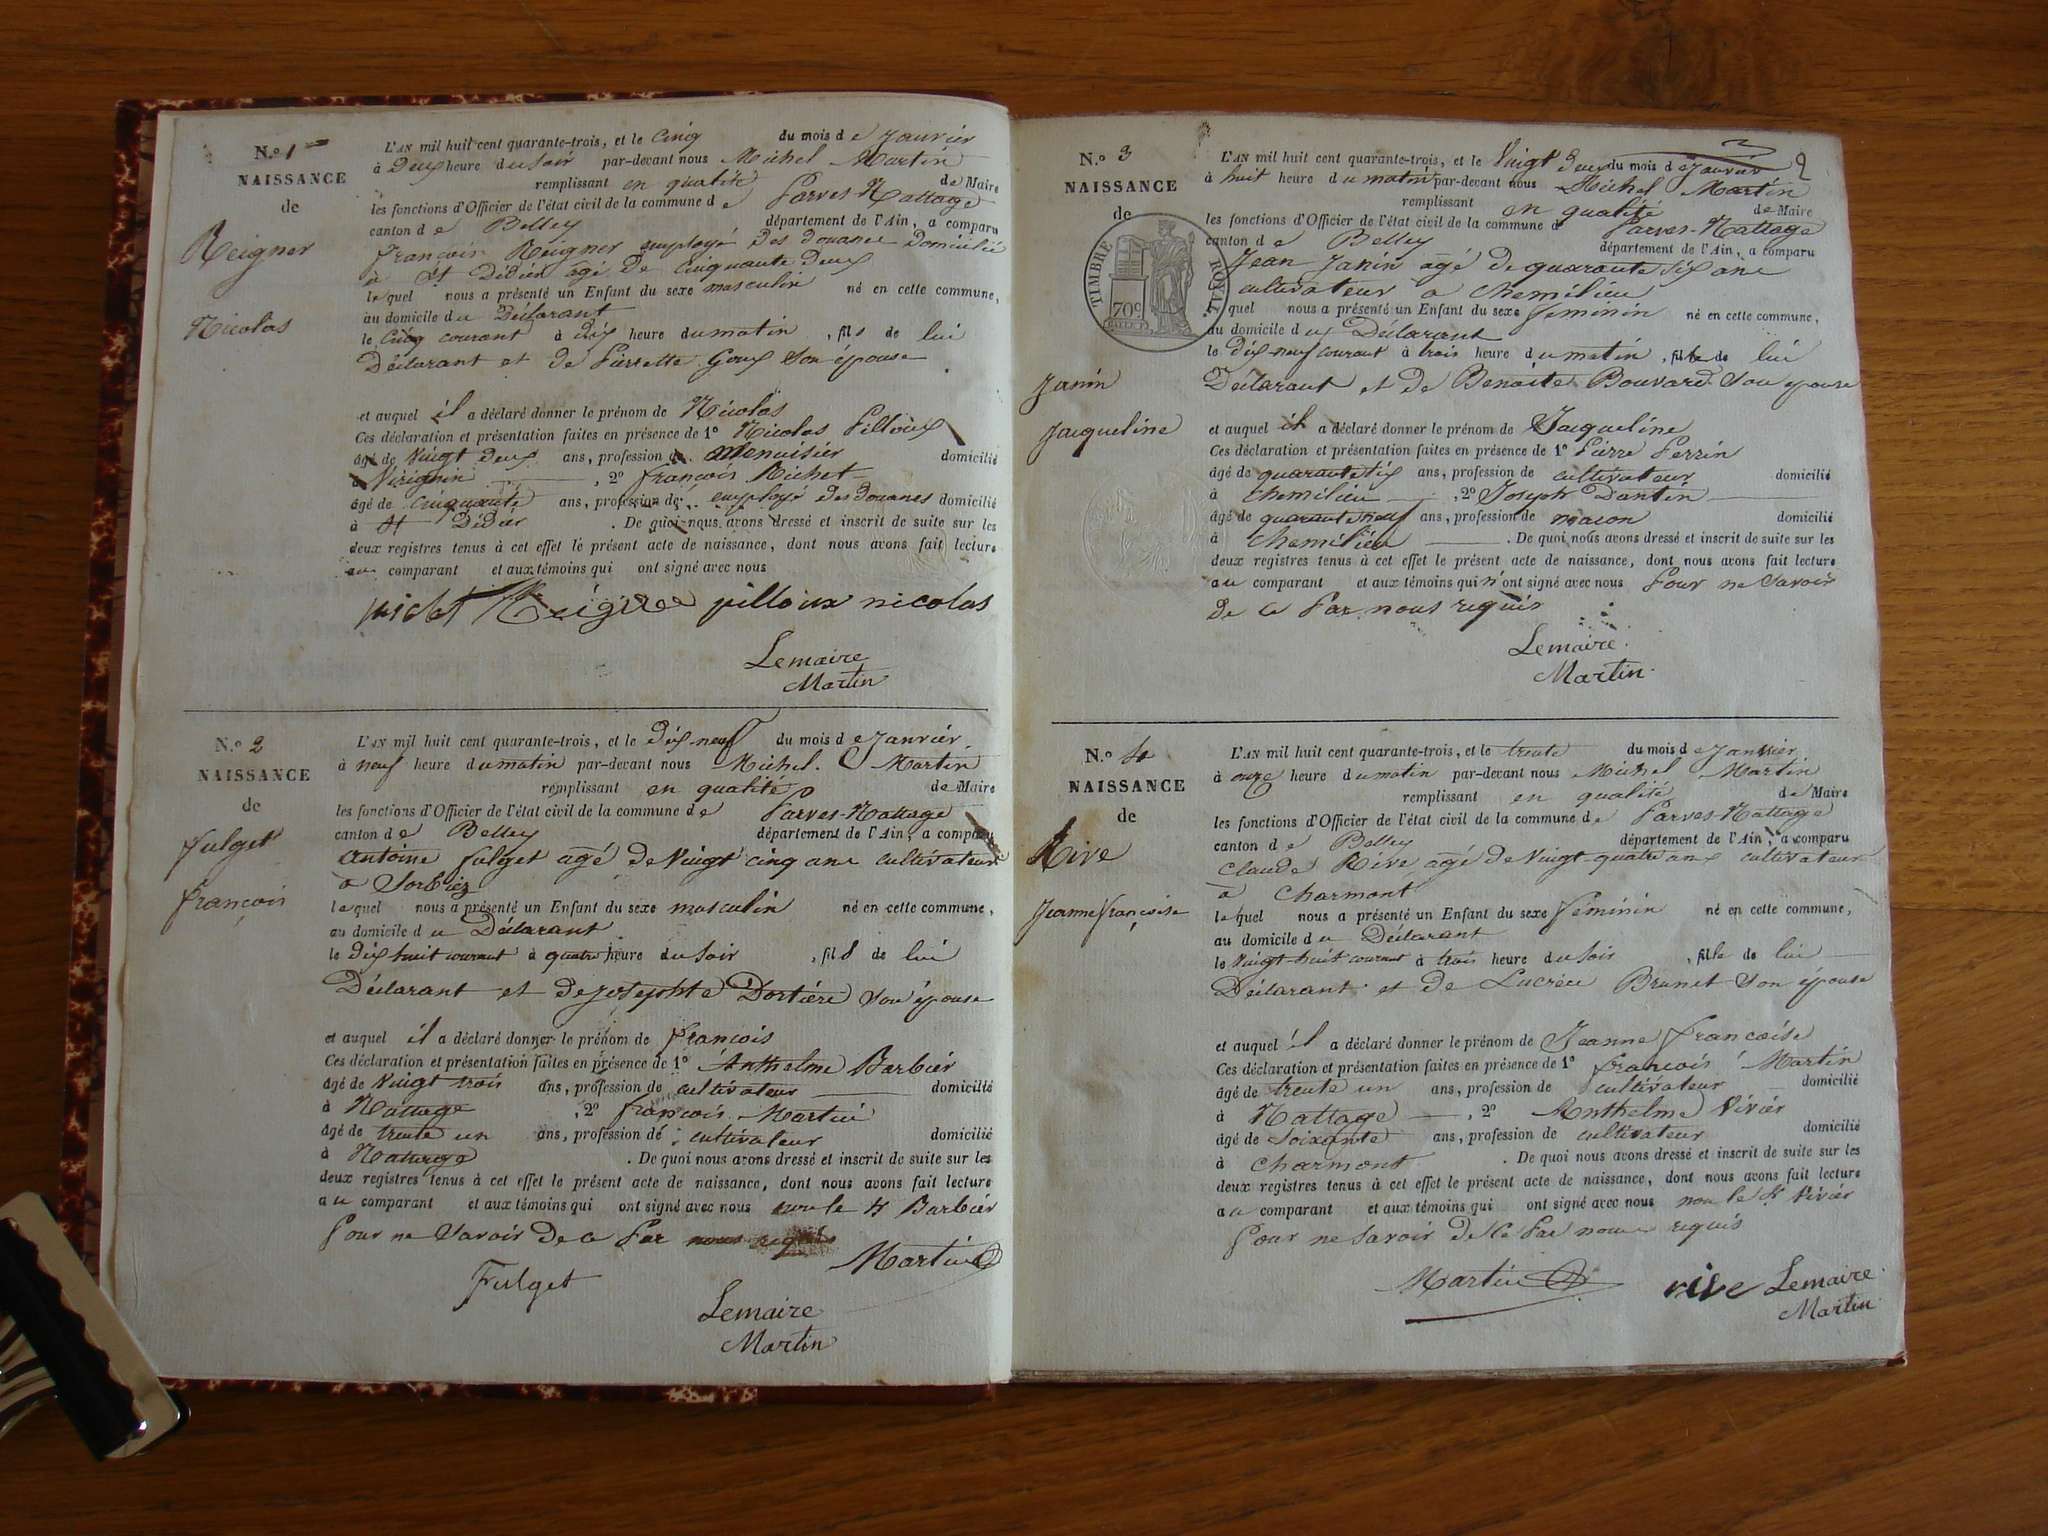 N.o 1
NAISSANCE
de
Reigner
Nicolas
L'AN mil huit cent quarante-trois, et le Cinq du mois de Janvier
à Deux heure du soir par-devant nous Michel Martin
remplissant en qualité de Maire
les fonctions d'Officier de l'état civil de la commune de Parves-Nattage
canton de Belley département de l'Ain, a comparu
François Reigner employé des douanes Domicilié
à St Didier agé de Cinquante deux
lequel nous a présenté un Enfant du sexe masculin né en cette commune,
au domicile du Déclarant
le Cinq courant à dix heure du matin, fils de lui
Déclarant et de Pierrette Goux son épouse
et auquel il a déclaré donner le prénom de Nicolas
Ces déclaration et présentation faites en présence de 1o Nicolas Pilloux
âgé de Vingt deux ans, profession de Menuisier domicilié
à Virignin, 2o François Richet
âgé de Cinquante ans, profession de employé des douanes domicilié
à St Didier. De quoi nous avons dressé et inscrit de suite sur les
deux registres tenus à cet effet le présent acte de naissance, dont nous avons fait lecture
au comparant et aux témoins qui ont signé avec nous
pilloux nicolas
Lemaire
Martin
N.o 2
NAISSANCE
de
fulget
françois
L'AN mil huit cent quarante-trois, et le dix-neuf du mois de Janvier
à neuf heure du matin par-devant nous Michel Martin
remplissant en qualité de Maire
les fonctions d'Officier de l'état civil de la commune de Parves-Nattage
canton de Belley département de l'Ain, a comparu
Antoine fulget agé de Vingt cinq ans cultivateur
à Sorbiez
lequel nous a présenté un Enfant du sexe masculin né en cette commune,
au domicile du Déclarant
le Dix huit courant à quatre heure du soir, fils de lui
Déclarant et de josephte Dortiére son épouse
et auquel il a déclaré donner le prénom de françois
Ces déclaration et présentation faites en présence de 1o Anthelme Barbier
âgé de Vingt trois ans, profession de cultivateur domicilié
à Nattage, 2o françois Martin
âgé de trente un ans, profession de cultivateur domicilié
à Nattage. De quoi nous avons dressé et inscrit de suite sur les
deux registres tenus à cet effet le présent acte de naissance, dont nous avons fait lecture
au comparant et aux témoins qui ont signé avec nous non le Sr Barbier
Pour ne Savoir de ce Par nous requis
Martin
Fulget
Lemaire
Martin
2
N.o 3
NAISSANCE
de
TIMBRE ROYAL.
70c
Janin
Jacqueline
L'AN mil huit cent quarante-trois, et le Vingt deux du mois de Janvier
à huit heure du matin par-devant nous Michel Martin
remplissant en qualité de Maire
les fonctions d'Officier de l'état civil de la commune de Parves-Nattage
canton de Belley département de l'Ain, a comparu
Jean Janin agé de quarante six ans
cultivateur a Chemilieu
quel nous a présenté un Enfant du sexe féminin né en cette commune,
au domicile du Déclarant
le Dix-neuf courant à trois heure du matin, fille de lui
Déclarant et de Benoite Bouvard son épouse
et auquel il a déclaré donner le prénom de Jacqueline
Ces déclaration et présentation faites en présence de 1o Pierre Perrin
âgé de quarante six ans, profession de cultivateur domicilié
à Chemilieu, 2o Joseph Dantin
âgé de quarante neuf ans, profession de macon domicilié
à Chemilieu. De quoi nous avons dressé et inscrit de suite sur les
deux registres tenus à cet effet le présent acte de naissance, dont nous avons fait lecture
au comparant et aux témoins qui n'ont signé avec nous Pour ne Savoir
de ce Par nous requis
Lemaire.
Martin.
N.o 4
NAISSANCE
de
Rive
Jeanne françoise
L'AN mil huit cent quarante-trois, et le trente du mois de Janvier
à onze heure du matin par-devant nous Michel Martin
remplissant en qualité de Maire
les fonctions d'Officier de l'état civil de la commune de Parves-Nattage
canton de Belley département de l'Ain, a comparu
Claude Rive agé de Vingt-quatre ans cultivateur
à Charmont
lequel nous a présenté un Enfant du sexe féminin né en cette commune,
au domicile du Déclarant
le Vingt-huit courant à trois heure du soir, fille de lui
Déclarant et de Lucréce Brunet son épouse
et auquel il a déclaré donner le prénom de Jeanne françoise
Ces déclaration et présentation faites en présence de 1o françois Martin
âgé de trente un ans, profession de cultivateur domicilié
à Nattage, 2o Anthelme Vivier
âgé de soixante ans, profession de cultivateur domicilié
à Charmont. De quoi nous avons dressé et inscrit de suite sur les
deux registres tenus à cet effet le présent acte de naissance, dont nous avons fait lecture
au comparant et aux témoins qui ont signé avec nous non le Sr Vivier
Pour ne savoir de ce Par nous requis
Martin rive Lemaire.
Martin.